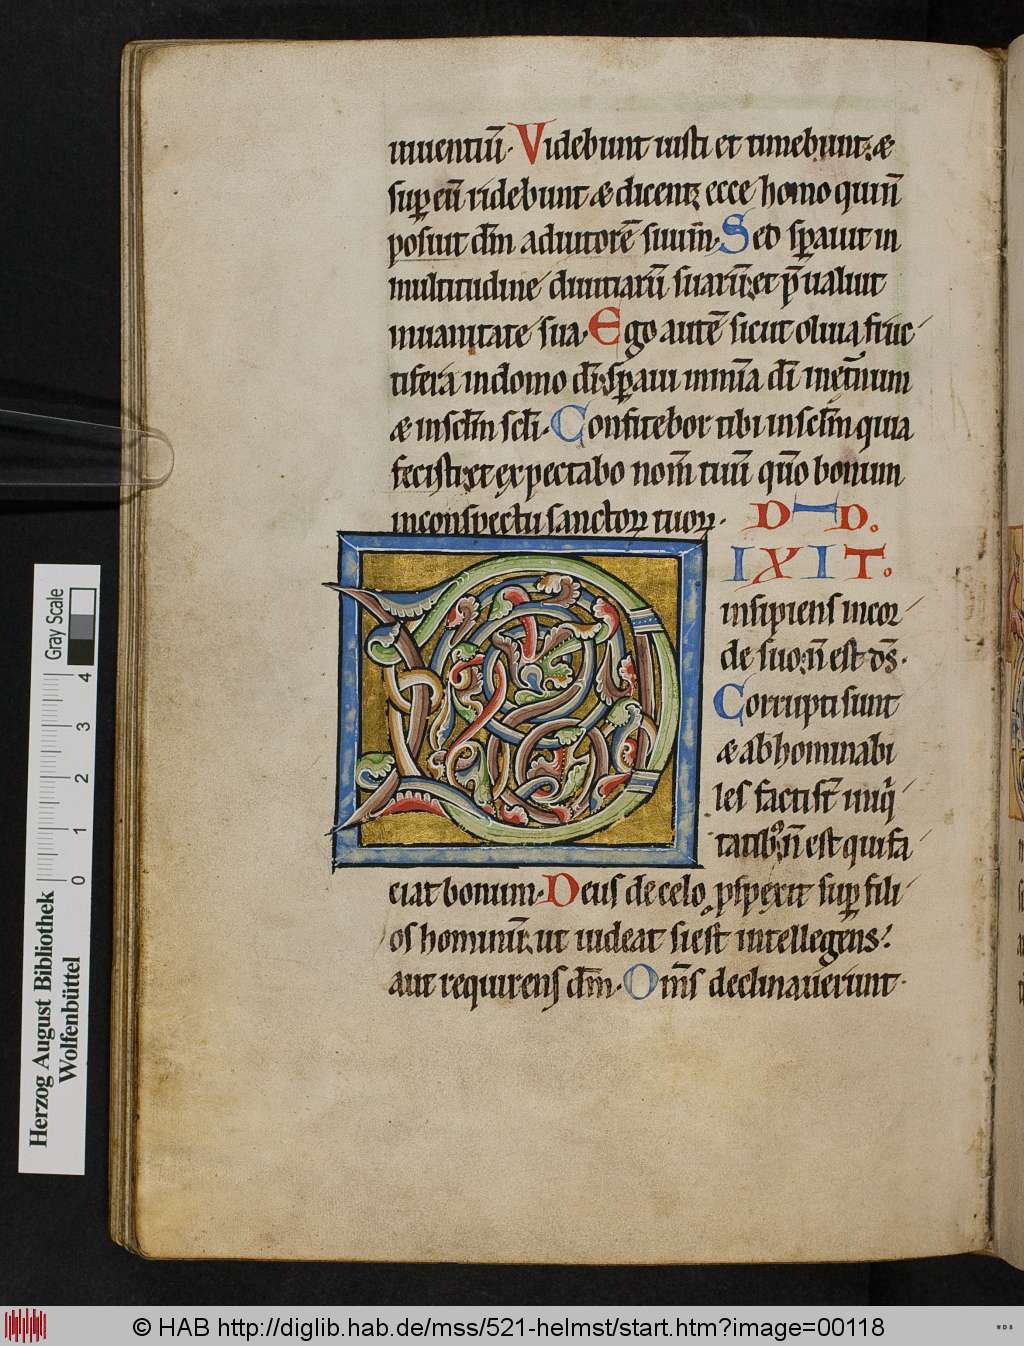 uiuentiū. Videbunt iusti et timebunt; &
sup eū ridebunt & dicent; ecce homo qui ñ
posuit dm̄ adiutorē suum̄. Sed sꝑauit in
multitudine diuitiarū suarū; et p̄ualuit
inuanitate sua. Ego autē sicut oliua fruc
tifera indomo dī; sꝑaui inmīa dī inet̄num
& insclm̄ scli. Confitebor tibi insclm̄ quia
fecisti; et expectabo nom̄ tuū qm̄o bonum
inconspectu sanctoꝝ tuoꝝ. D D.
IXIT.
insipiens incor
de suo; ñ est ds̄.
Corrupti sunt
& abhominabi
les facti st̄ iniq̄
tatib; ñ est qui fa
ciat bonum. Deus de celo pspexit sup fili
os hominum̄; ut uideat si est intellegens;
aut requirens dm̄. Om̄s declinauerunt.
Herzog August Bibliothek
Wolfenbüttel
Gray Scale
0 1 2 3 4
© HAB http://diglib.hab.de/mss/521-helmst/start.htm?image=00118
WDB